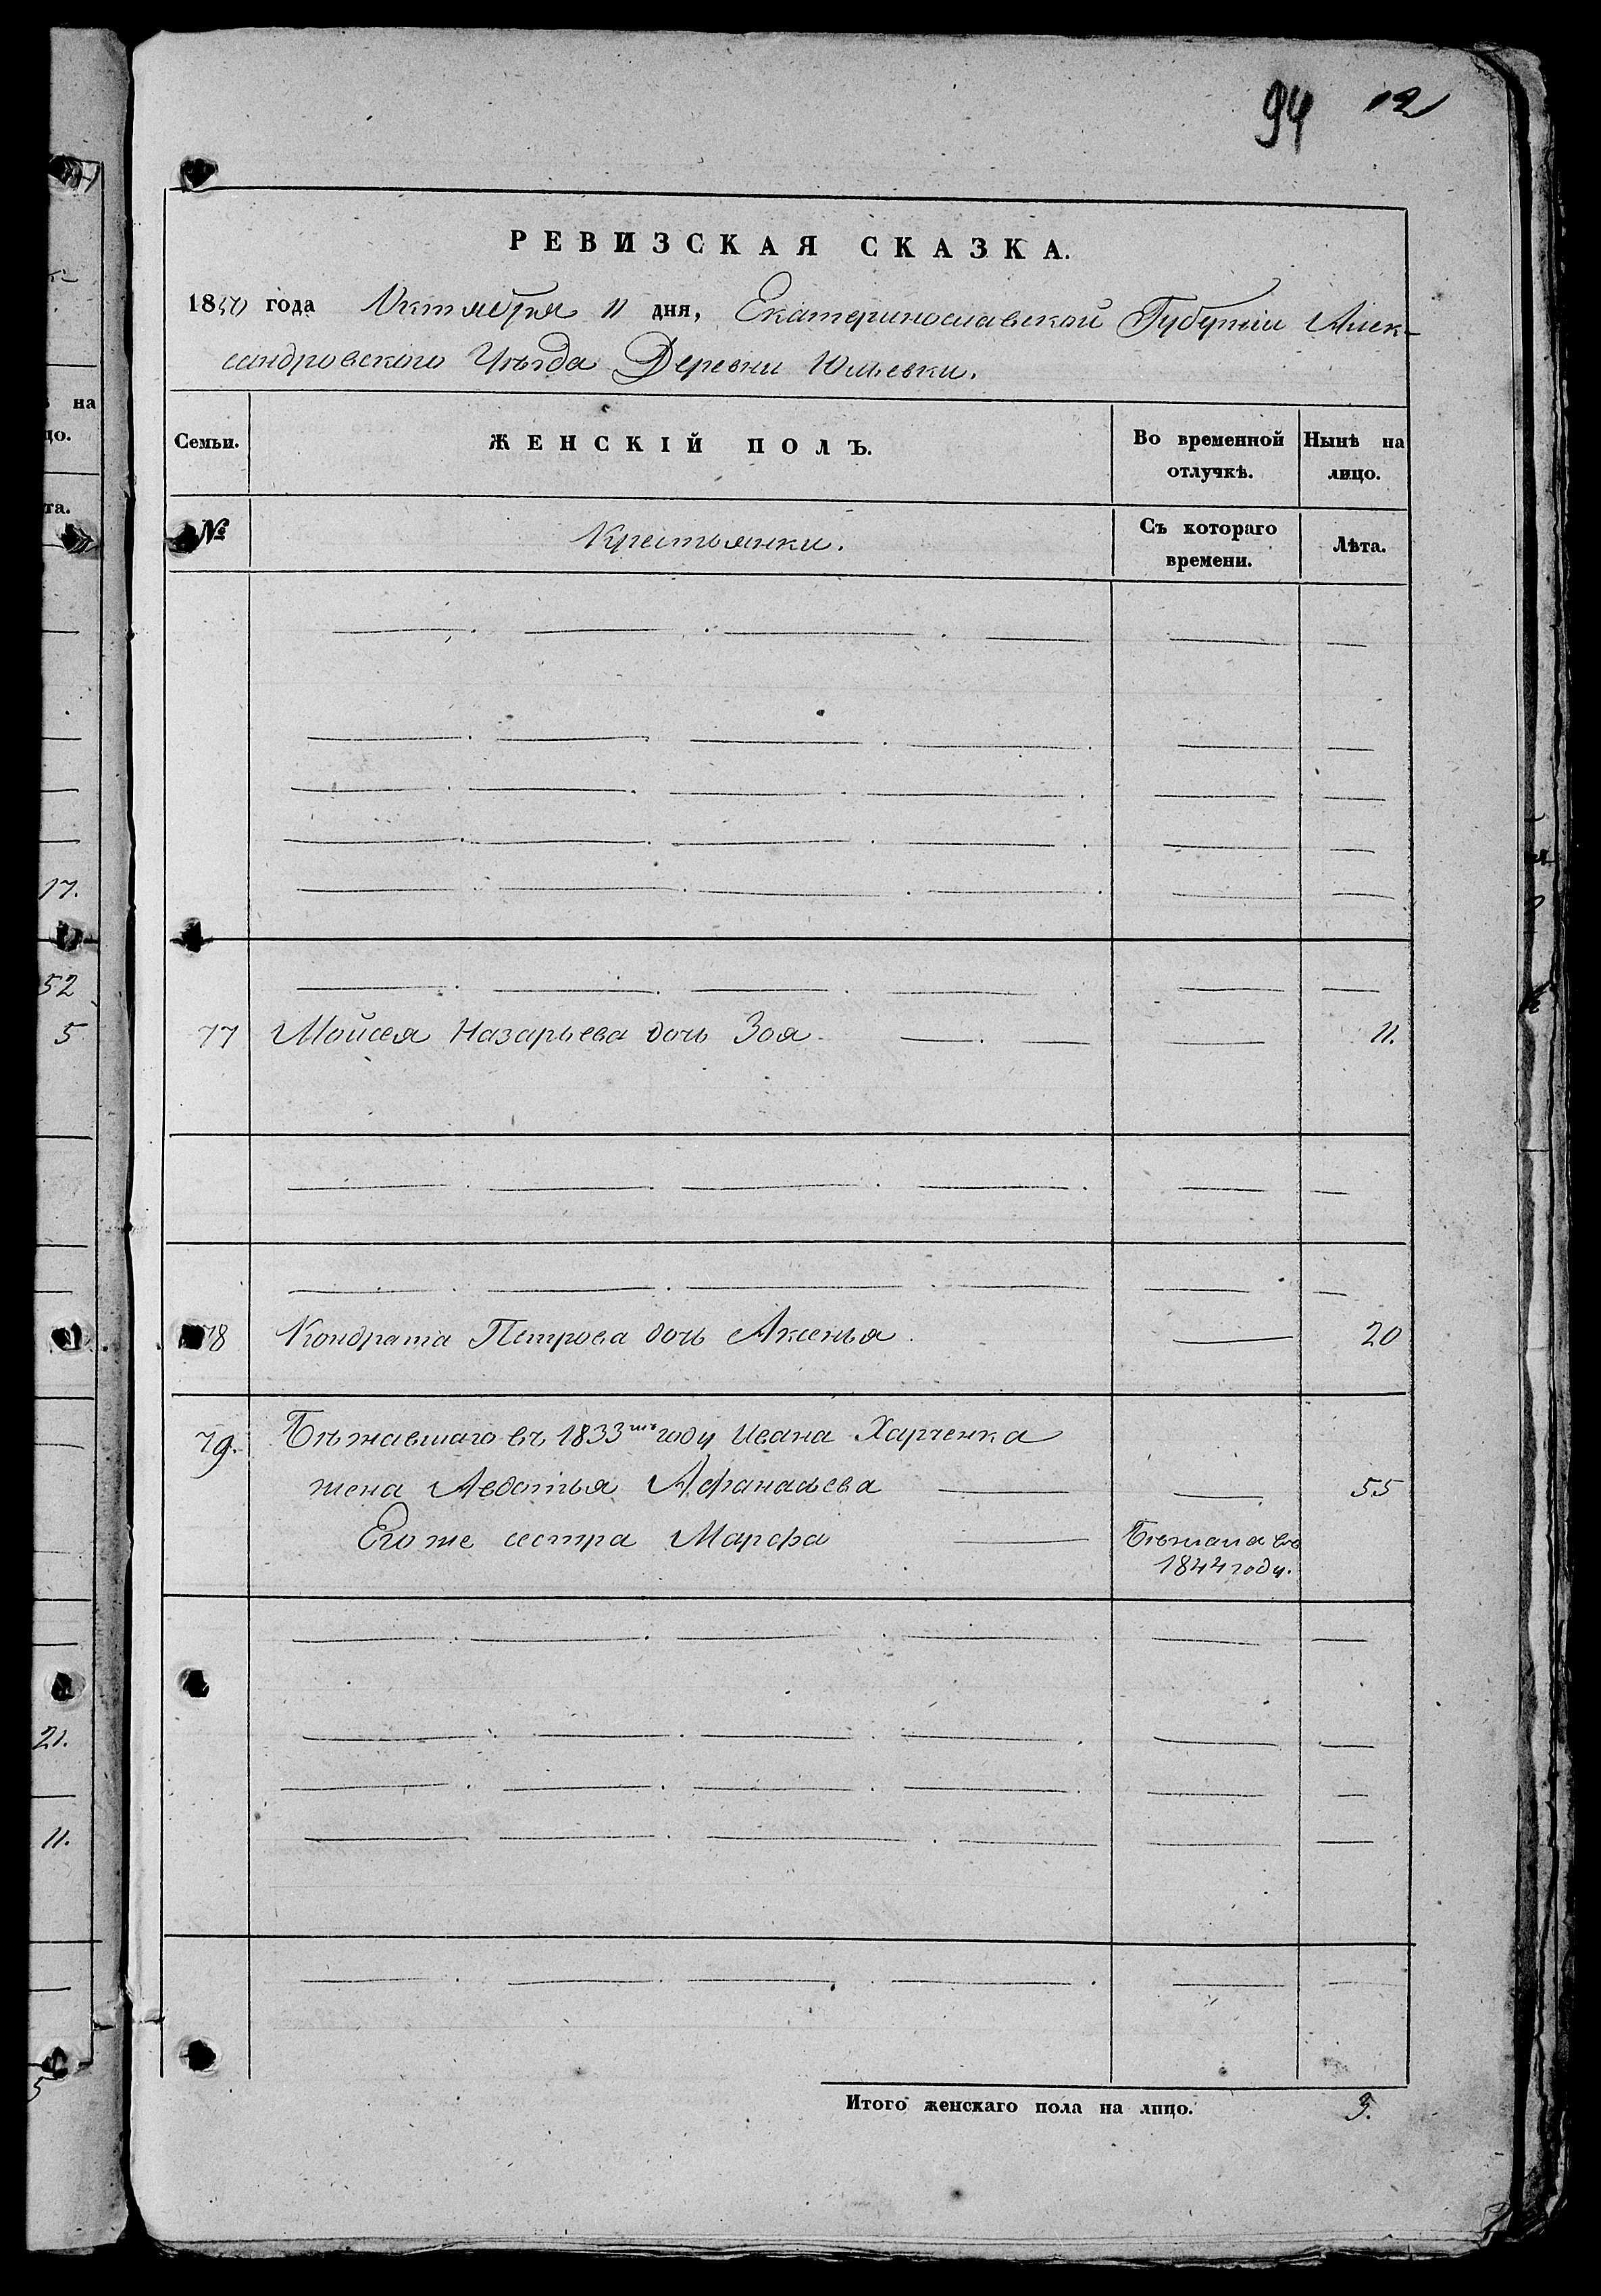 94 12
РЕВИЗСКАЯ СКАЗКА.
1850 года Октября 11 дня, Екатеринославской Губерніи Алек-
сандровскаго Уѣзда Деревни Юльевки.
на
цо.
Семьи. ЖЕНСКІЙ ПОЛЪ. Во временной отлучкѣ. Нынѣ на лицо.
та.
№ Крестьянки. Съ котораго времени. Лѣта.
17.
52
5 77 Мойсея Назарьева дочь Зоя 11.
78 Кондрата Петрова дочь Аксенья. 20
79. Бѣжавшаго въ 1833мъ году Ивана Харченка
жена Авдотья Афанасьева 55
Его же сестра Марфа Бѣжала въ
1844 году.
21.
11.
5
Итого женскаго пола на лицо. 3.